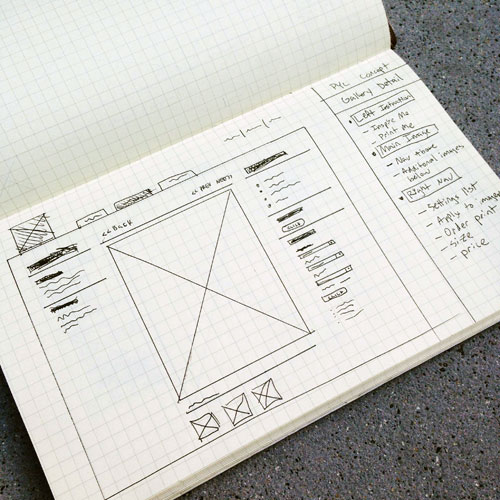 PYL Concept
Gallery Detail
Left Instruction
- Inspire Me
- Print Me
Main Image
- Nav above
- Additional images
below
Right Nav
- Settings list
- Apply to image
- Order print
- size
- price
<< BACK
<< PREV NEXT >>